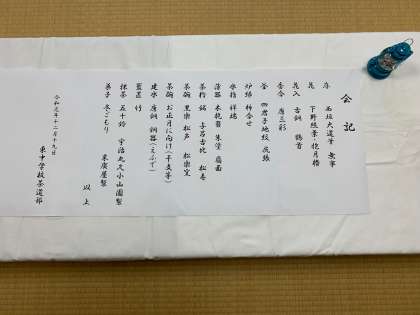 会記
床 西垣大道筆 無事
花 下野紅葉・抱月椿
花入 古銅 鶴首
香合 唐三彩
釜 四君子地紋 尻張
炉縁 柿合せ
水指 祥瑞
薄器 木乾器 朱塗
茶杓 銘 与呂古比 松寿
茶碗 黒楽 松戸 松楽窯
茶碗 お正月に向け(干支等)
建水 唐銅
蓋置 竹
抹茶 五十鈴 宇治丸久小山園製
菓子 冬ごもり 末廣屋製
以上
令和元年十二月十九日
東中学校茶道部